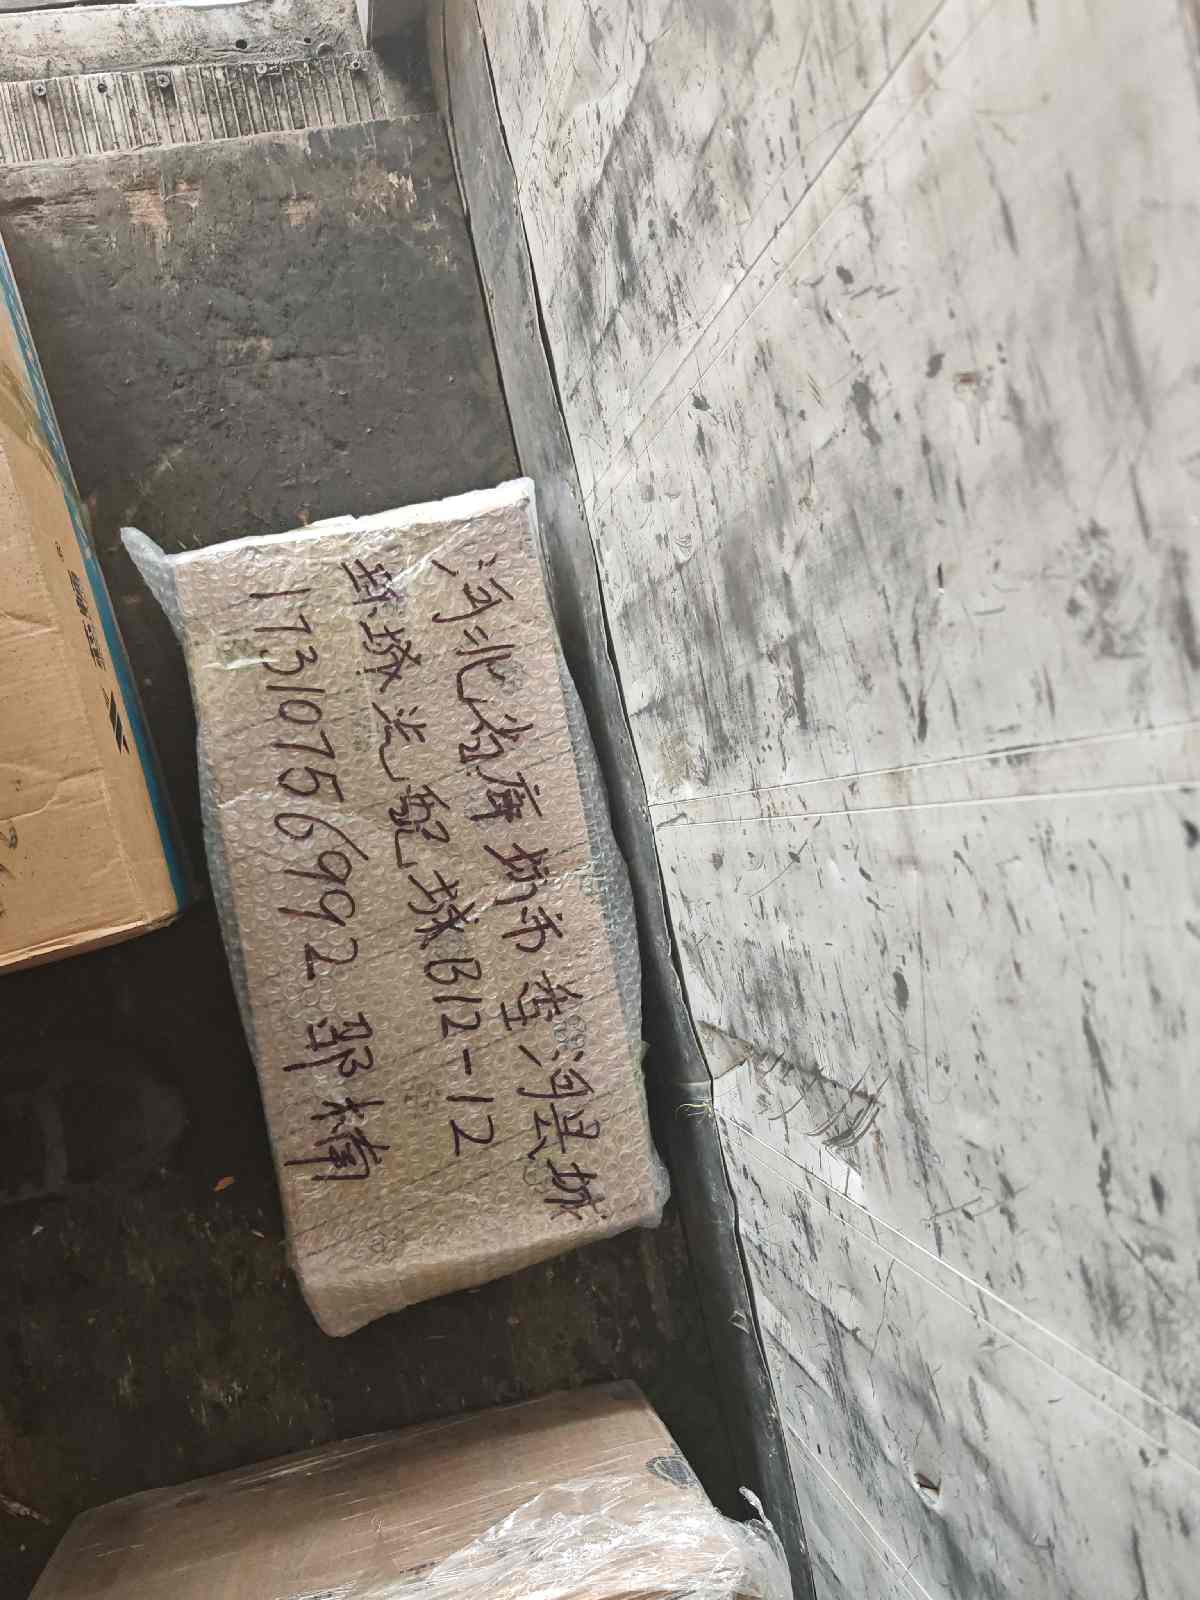 河北省唐坊市香河县城
环城汽配城B12-12
17310756992 郭楠